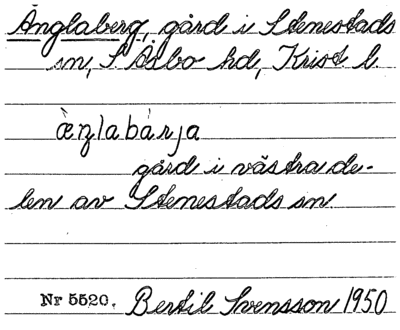 Änglaberg, gård i Stenestads
sn, S. Åsbo hd, Krist l.
gård i västra de-
len av Stenestads sn
Nr 5520. Bertil Svensson 1950